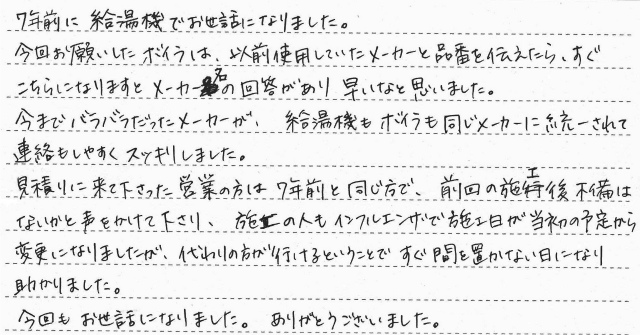 7年前に 給湯機でお世話になりました。
今回お願いしたボイラは、以前使用していたメーカーと品番を伝えたら、すぐ
こちらになりますとメーカー名の回答があり 早いなと思いました。
今までバラバラだったメーカーが、 給湯機もボイラも同じメーカーに統一されて
連絡もしやすくスッキリしました。
見積りに来て下さった営業の方は7年前と同じ方で、前回の施工後不備は
ないかと声をかけて下さり、 施工の人もインフルエンザで施工日が当初の予定から
変更になりましたが、代わりの方が行けるということですぐ間を置かない日になり
助かりました。
今回もお世話になりました。 ありがとうございました。